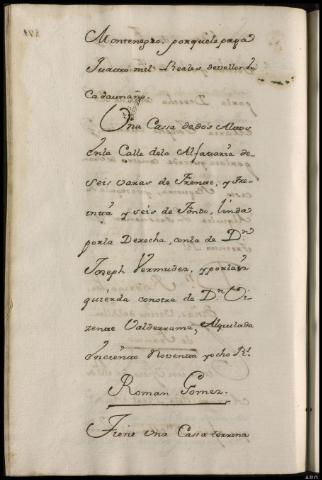 Montenegro, porque le paga
quatro mil Reales de vellon
Cada un año.
Una Casa de dos Altos
en la Calle de la Alfareria de
seis varas de Frente, y tre-
inta y seis de Fondo, linda
por la Derecha, con la de Dn
Joseph Vermudez, y por la iz-
quierda con otra de Dn Vi-
zente Valderrama, Alquilada
en ciento Noventa y ocho Rs.
Roman Gomez.
Tiene una Cassa terrena